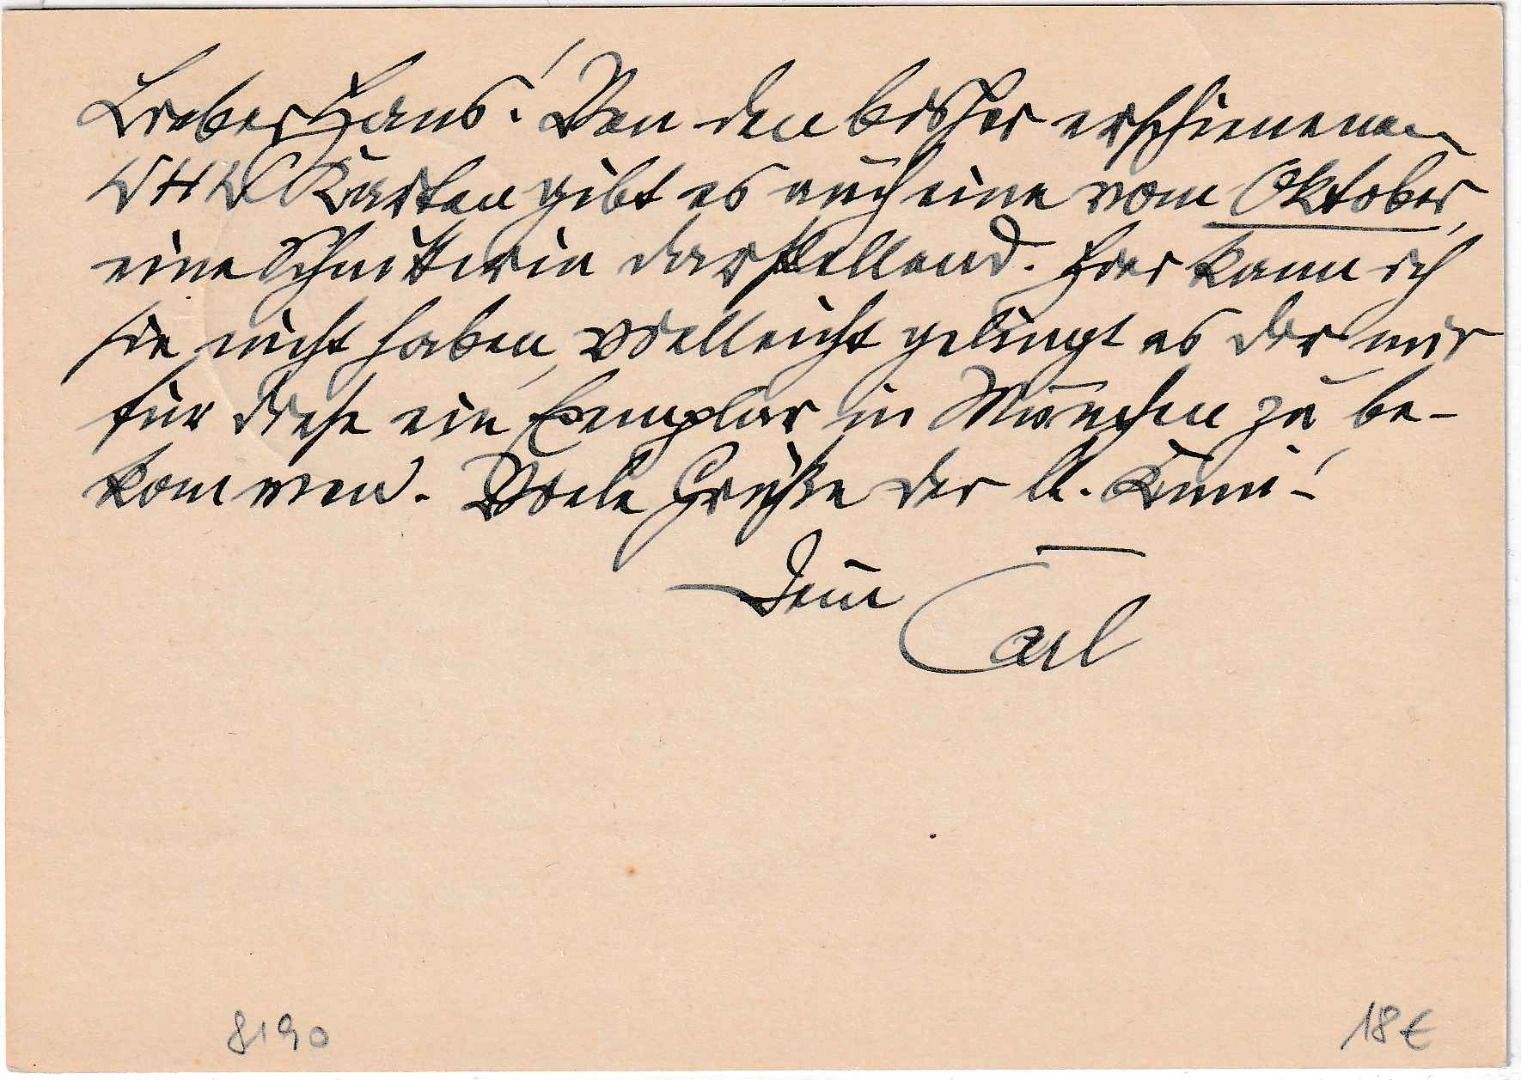 Lieber Hans! Von den bisher erschienenen
WHW Karten gibt es auch eine vom Oktober,
eine Schnitterin darstellend. Hier kann ich
sie nicht haben, vielleicht gelingt es Dir mir
für diese ein Exemplar in München zu be-
kommen. Viele Grüße Dir u.
Dein
Carl
8190
18€